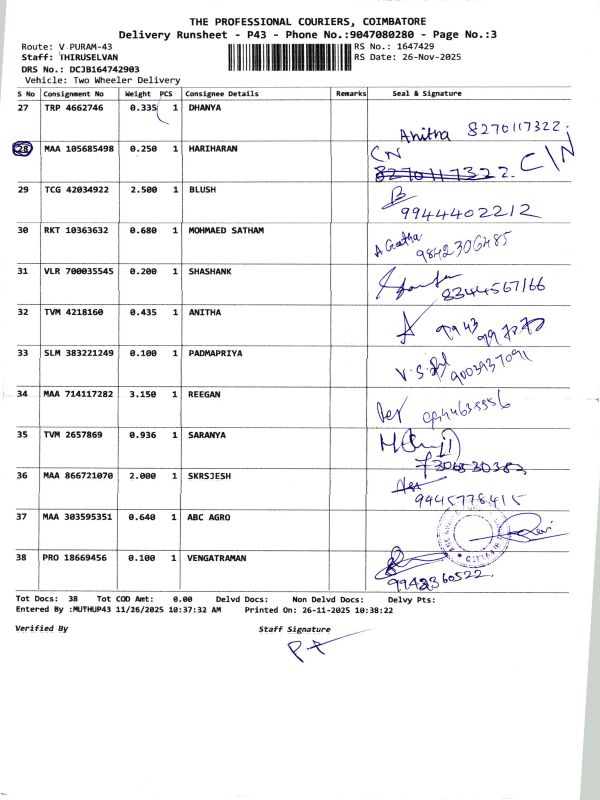 THE PROFESSIONAL COURIERS, COIMBATORE
Delivery Runsheet - P43 - Phone No.:9047080280 - Page No.:3
Route: V PURAM-43 RS No.: 1647429
Staff: THIRUSELVAN RS Date: 26-Nov-2025
DRS No.: DCJB164742903
Vehicle: Two Wheeler Delivery
S No Consignment No Weight PCS Consignee Details Remarks Seal & Signature
27 TRP 4662746 0.335 1 DHANYA
Anitha 8270117322.
28 MAA 105685498 0.250 1 HARIHARAN CN C\N
8270117322.
29 TCG 42034922 2.500 1 BLUSH
9944402212
30 RKT 10363632 0.680 1 MOHMAED SATHAM
9842306485
31 VLR 700035545 0.200 1 SHASHANK
8344567166
32 TVM 4218160 0.435 1 ANITHA
33 SLM 383221249 0.100 1 PADMAPRIYA
9003937091
34 MAA 714117282 3.150 1 REEGAN
35 TVM 2657869 0.936 1 SARANYA
36 MAA 866721070 2.000 1 SKRSJESH
9445778415
37 MAA 303595351 0.640 1 ABC AGRO
38 PRO 18669456 0.100 1 VENGATRAMAN
9942360522
Tot Docs: 38 Tot COD Amt: 0.00 Delvd Docs: Non Delvd Docs: Delvy Pts:
Entered By :MUTHUP43 11/26/2025 10:37:32 AM Printed On: 26-11-2025 10:38:22
Verified By Staff Signature